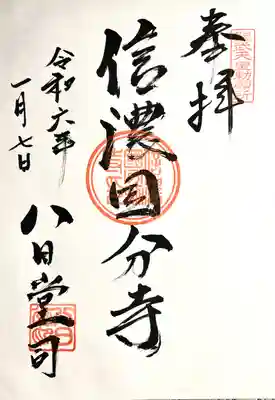 奉拝
信濃国分寺
八日堂司
令和六年
一月七日